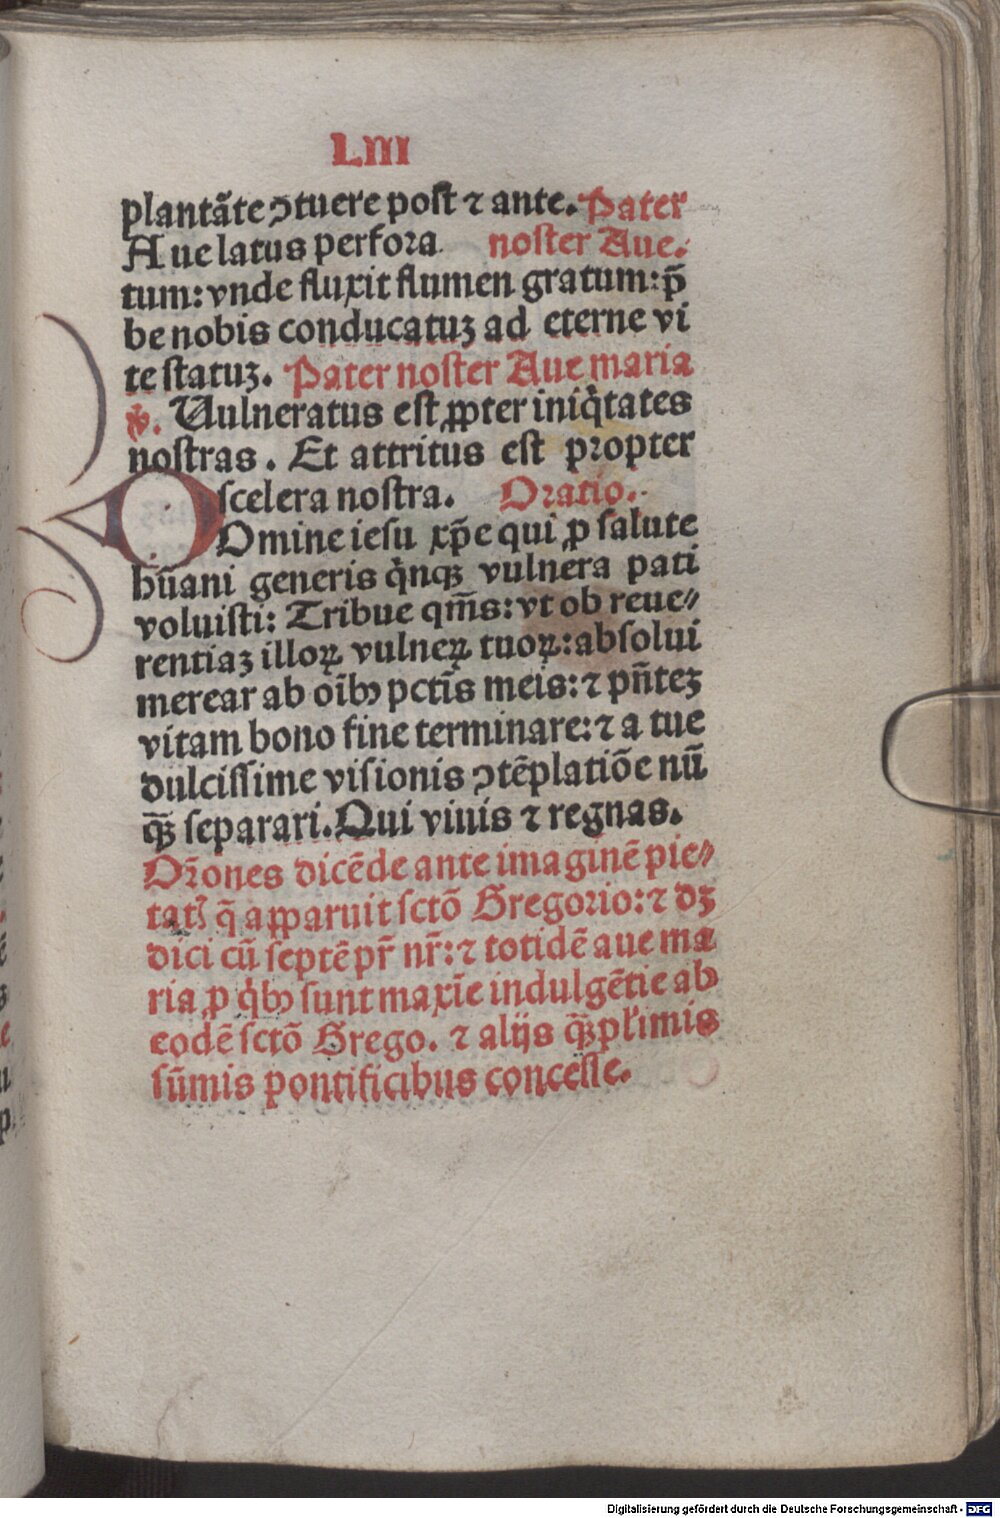 LIII
plantāte ↄtuere post ⁊ ante. Pater
Aue latus perfora noster Aue.
tum: vnde fluxit flumen gratum: p̄
be nobis conducatuꝫ ad eterne vi
te statuꝫ. Pater noster Aue maria
℣. Uulneratus est ꝓpter iniq̇tates
nostras. Et attritus est propter
scelera nostra. Oratio.
Domine iesu xp̄e qui ꝓ salute
hūani generis q̇nqꝫ vulnera pati
voluisti: Tribue qm̄s: vt ob reue⸗
rentiaꝫ illoꝝ vulneꝝ tuoꝝ: absolui
merear ab oībꝰ pctīs meis: ⁊ pn̄teꝫ
vitam bono fine terminare: ⁊ a tue
dulcissime visionis ↄtēplatiōe nū
qꝫ̄ separari. Qui viuis ⁊ regnas.
Or̄ones dicēde ante imaginē pie⸗
tatꝭ q̄ apparuit sctō Gregorio: ⁊ dꝫ
dici cū septē pr̄ nr̄: ⁊ totidē aue ma
ria ꝓ q̇bꝰ sunt maxīe indulgētie ab
eodē sctō Grego. ⁊ alijs qꝫ̄ pl'imis
sūmis pontificibus concesse.
Digitalisierung gefördert durch die Deutsche Forschungsgemeinschaft - DFG